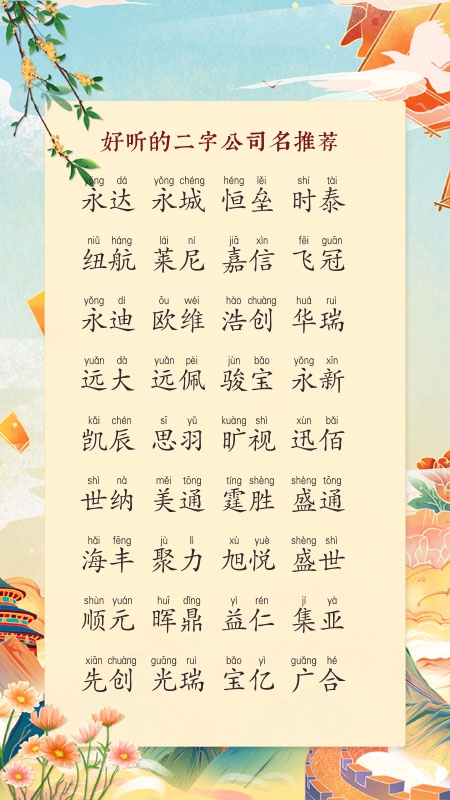 好听的二字公司名推荐
yǒng dá yǒng chéng héng lěi shí tài
永达 永城 恒垒 时泰
niǔ háng lái ní jiā xìn fēi guān
纽航 莱尼 嘉信 飞冠
yǒng dí ōu wéi hào chuàng huá ruì
永迪 欧维 浩创 华瑞
yuǎn dà yuǎn pèi jùn bǎo yǒng xīn
远大 远佩 骏宝 永新
kǎi chén sī yǔ kuàng shì xùn bǎi
凯辰 思羽 旷视 迅佰
shì nà měi tōng tíng shèng shèng tōng
世纳 美通 霆胜 盛通
hǎi fēng jù lì xù yuè shèng shì
海丰 聚力 旭悦 盛世
shùn yuán huī dǐng yì rén jí yà
顺元 晖鼎 益仁 集亚
xiān chuàng guāng ruì bǎo yì guǎng hé
先创 光瑞 宝亿 广合